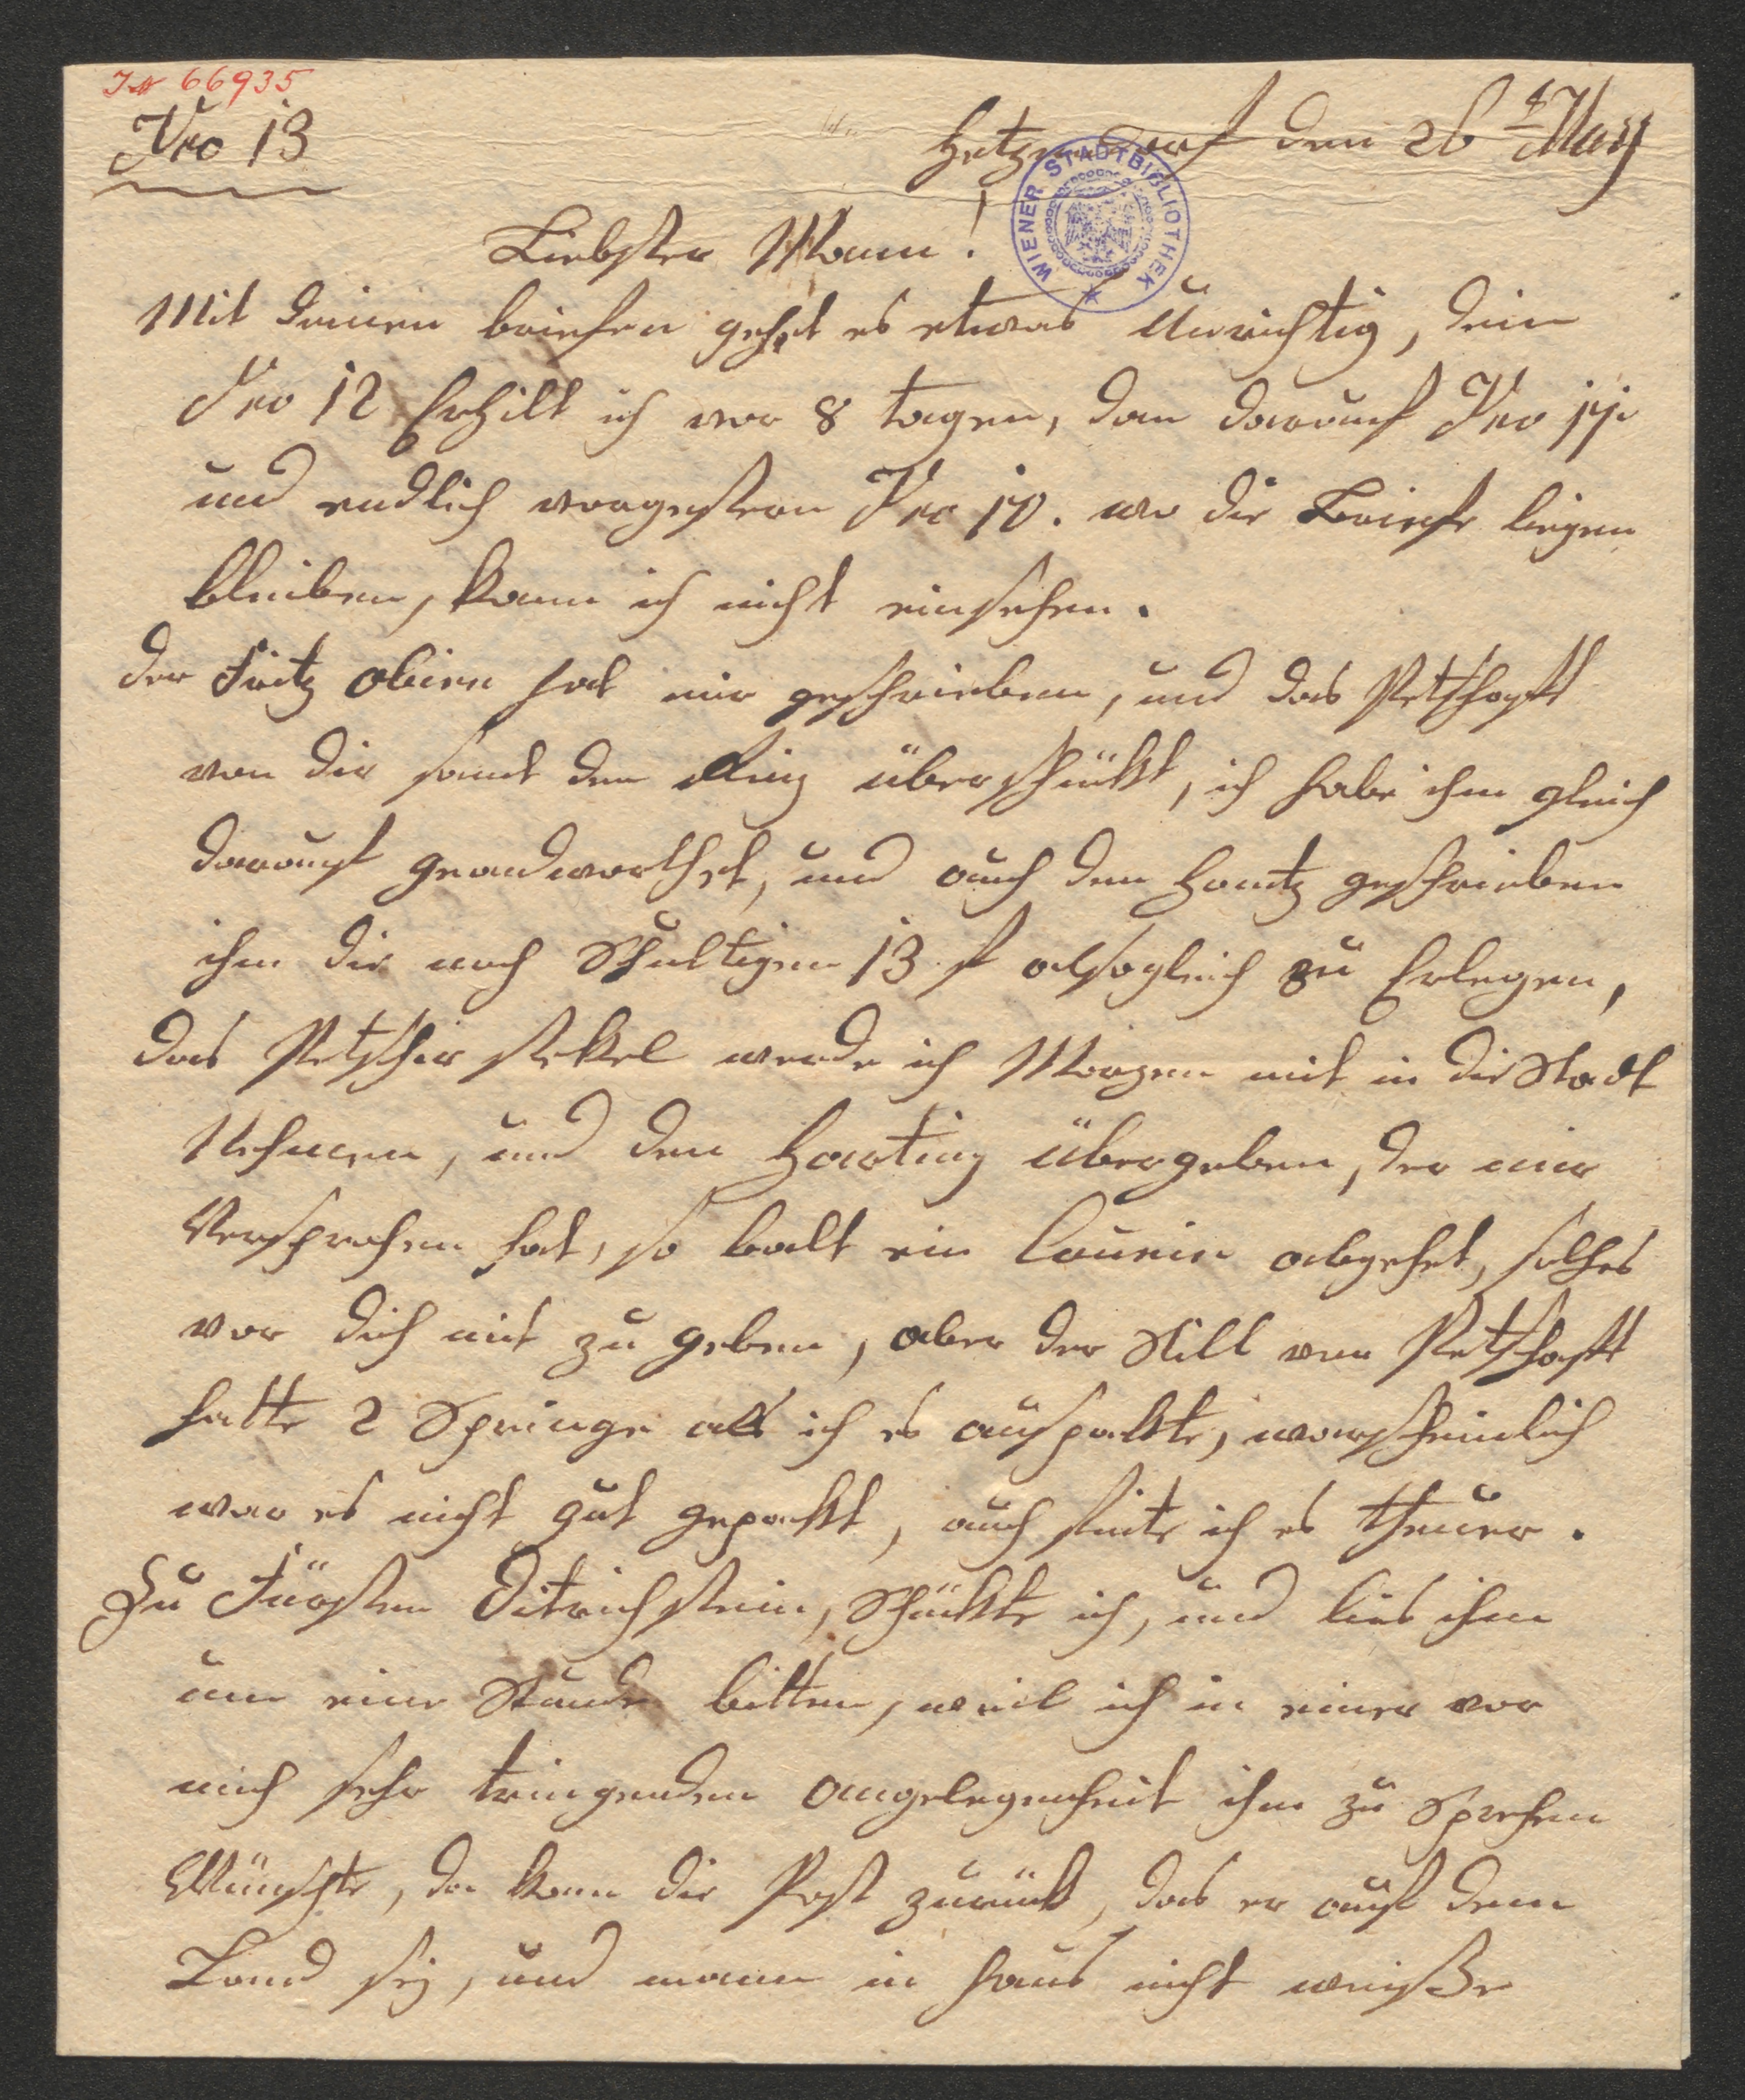 IN 66935
Nro 13
Hetzendorf den 26t May
WIENER STADTBIBLIOTHEK
Liebster Mann!
Mit deinen briefen gehet es etwas Unrichtig, dein
Nro 12 Erhilt ich vor 8 tagen, dan darauf Nro 11.
und endlich vorgestern Nro 10. wo die Briefe liegen
bleiben, kann ich nicht einsehen.
der Fritz hat mir geschrieben, und das Petschaft
von dir samt dem Ring überschückt, ich habe ihm gleich
darauf geandworthet, und auch dem geschrieben
ihm die noch Schultigen 13 f alsogleich zu Erlegen,
das Petschir stekel werde ich Morgen mit in die Stadt
Nehmen, und den Harting übergeben, der mir
Versprochen hat, so balt ein Courir abgehet, solches
vor dich mit zu geben, aber der Still von Petschaft
hatte 2 Springe als ich es auspakte, warscheinlich
war es nicht gut gepakt, auch finte ich es theuer.
Zu Fürsten Ditrichstein, Schückte ich, und lies ihm
um eine Stunde bitten, weil ich in einer vor
mich sehr tringenden angelegenheit ihm zu Sprechen
Wünschte, da kam die Post zurück, das er auf dem
Land sey, und mann in haus nicht weiße